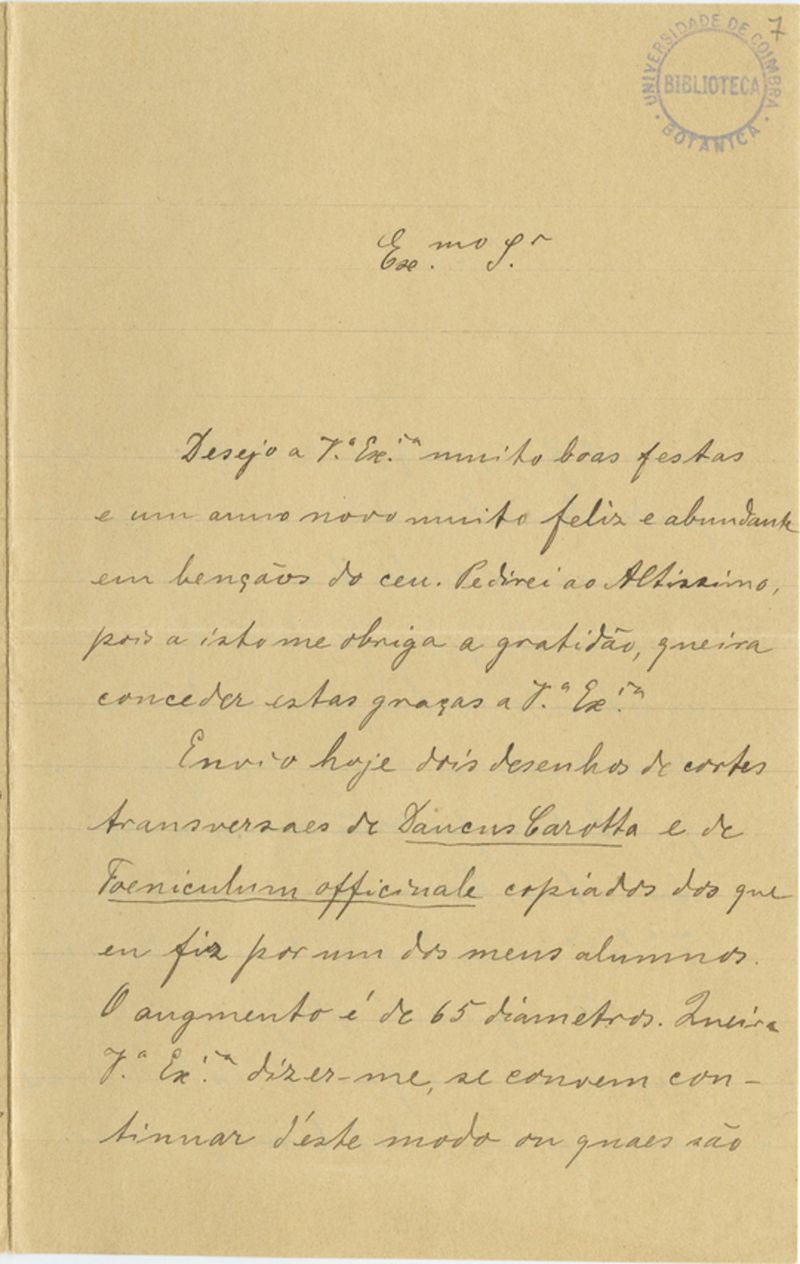 7
UNIVERSIDADE DE COIMBRA
BIBLIOTECA
BOTANICA
Ex.mo S.r
Desejo a V.ª Ex.ia muito boas festas
e um anno novo muito feliz e abundante
em bençãos do ceu. Pedirei ao Altissimo,
pois a isto me obriga a gratidão, queira
conceder estas graças a V.ª Ex.ia
Envio hoje dois desenhos de cortes
transversaes de Daucus Carotta e de
Foeniculum officinale copiados dos que
eu fiz por um dos meus alumnos.
O augmento é de 65 diametros. Queira
V.ª Ex.ia dizer-me, se convem con-
tinuar d'éste modo ou quaes são